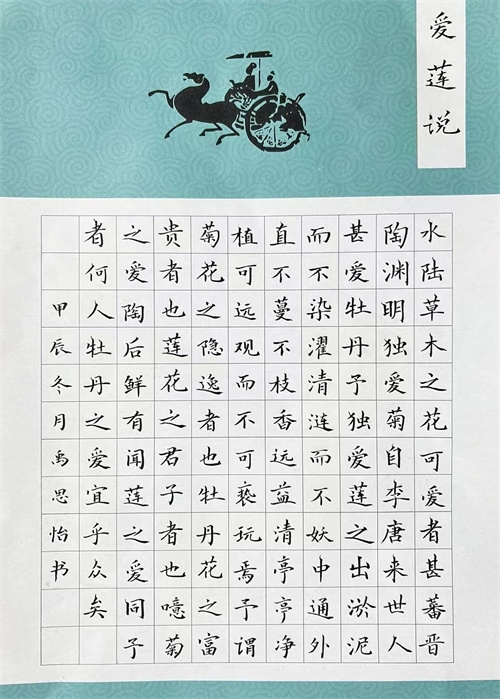 爱莲说
水陆草木之花可爱者甚蕃晋
陶渊明独爱菊自李唐来世人
甚爱牡丹予独爱莲之出淤泥
而不染濯清涟而不妖中通外
直不蔓不枝香远益清亭亭净
植可远观而不可亵玩焉予谓
菊花之隐逸者也牡丹花之富
贵者也莲花之君子者也噫菊
之爱陶后鲜有闻莲之爱同予
者何人牡丹之爱宜乎众矣
甲辰冬月禹思怡书